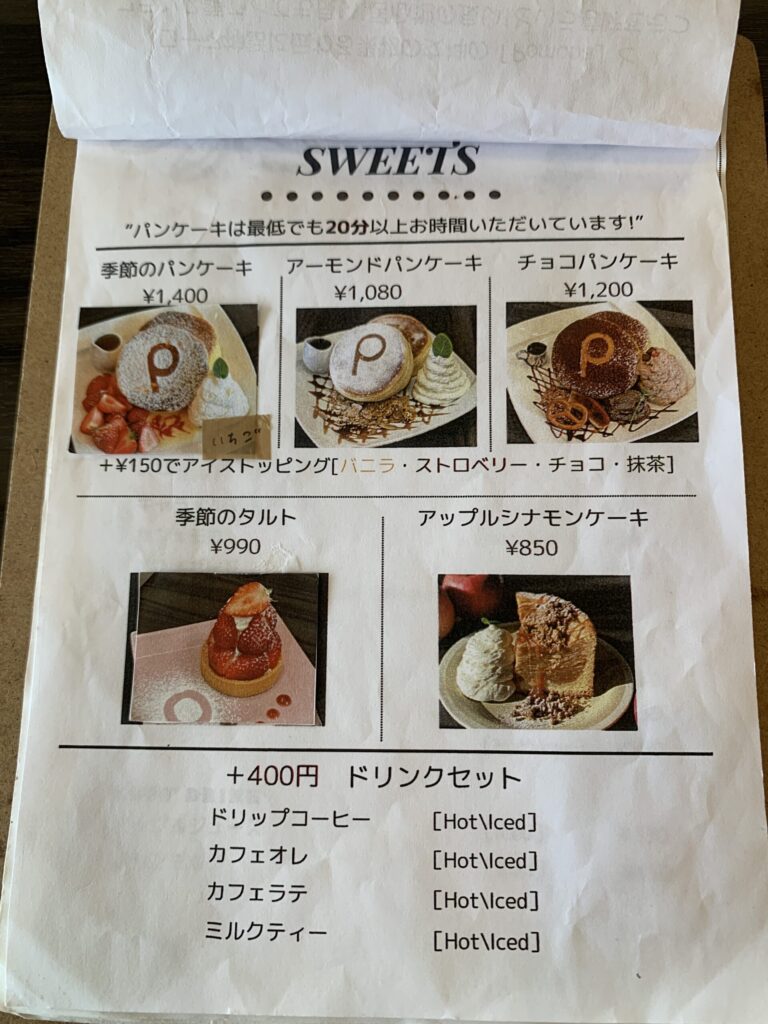 SWEETS
”パンケーキは最低でも20分以上お時間いただいています!”
季節のパンケーキ
¥1,400
アーモンドパンケーキ
¥1,080
チョコパンケーキ
¥1,200
いちご
+¥150でアイストッピング[バニラ・ストロベリー・チョコ・抹茶]
季節のタルト
¥990
アップルシナモンケーキ
¥850
+400円 ドリンクセット
ドリップコーヒー [Hot\Iced]
カフェオレ [Hot\Iced]
カフェラテ [Hot\Iced]
ミルクティー [Hot\Iced]